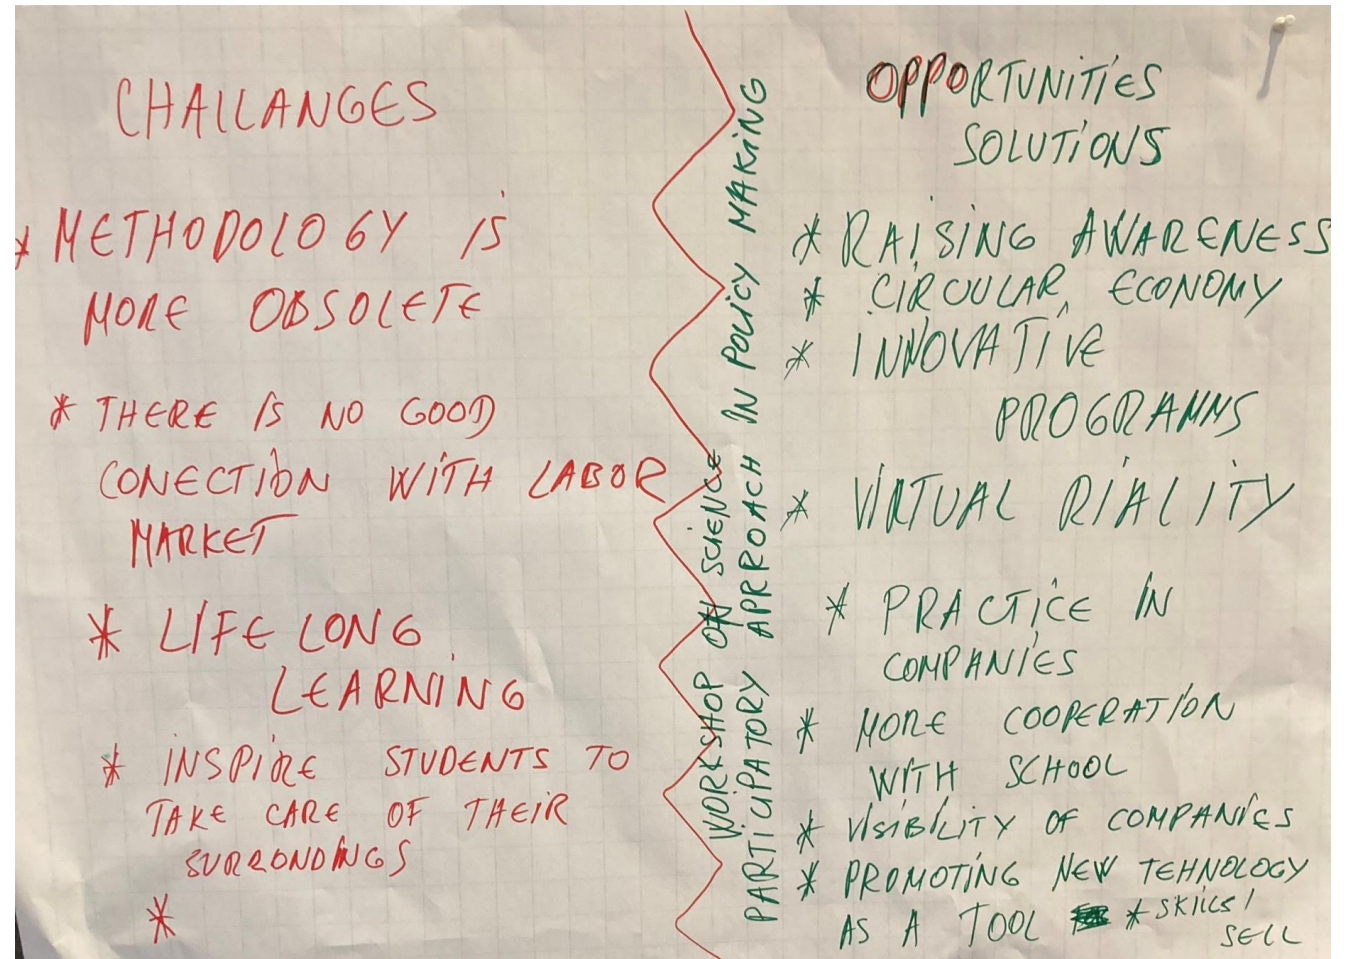 CHALLANGES
* METHODOLOGY IS
MORE OBSOLETE
* THERE IS NO GOOD
CONECTION WITH LABOR
MARKET
* LIFE LONG
LEARNING
* INSPIRE STUDENTS TO
TAKE CARE OF THEIR
SURRONDINGS
*
WORKSHOP ON SCIENCE
PARTICIPATORY APRROACH IN POLICY MAKING
OPPORTUNITIES
SOLUTIONS
* RAISING AWARENESS
* CIRCULAR, ECONOMY
* INNOVATIVE
PROGRAMMS
* VIRTUAL RIALITY
* PRACTICE IN
COMPANIES
* MORE COOPERATION
WITH SCHOOL
* VISIBILITY OF COMPANIES
* PROMOTING NEW TEHNOLOGY
AS A TOOL * SKILLS /
SELL